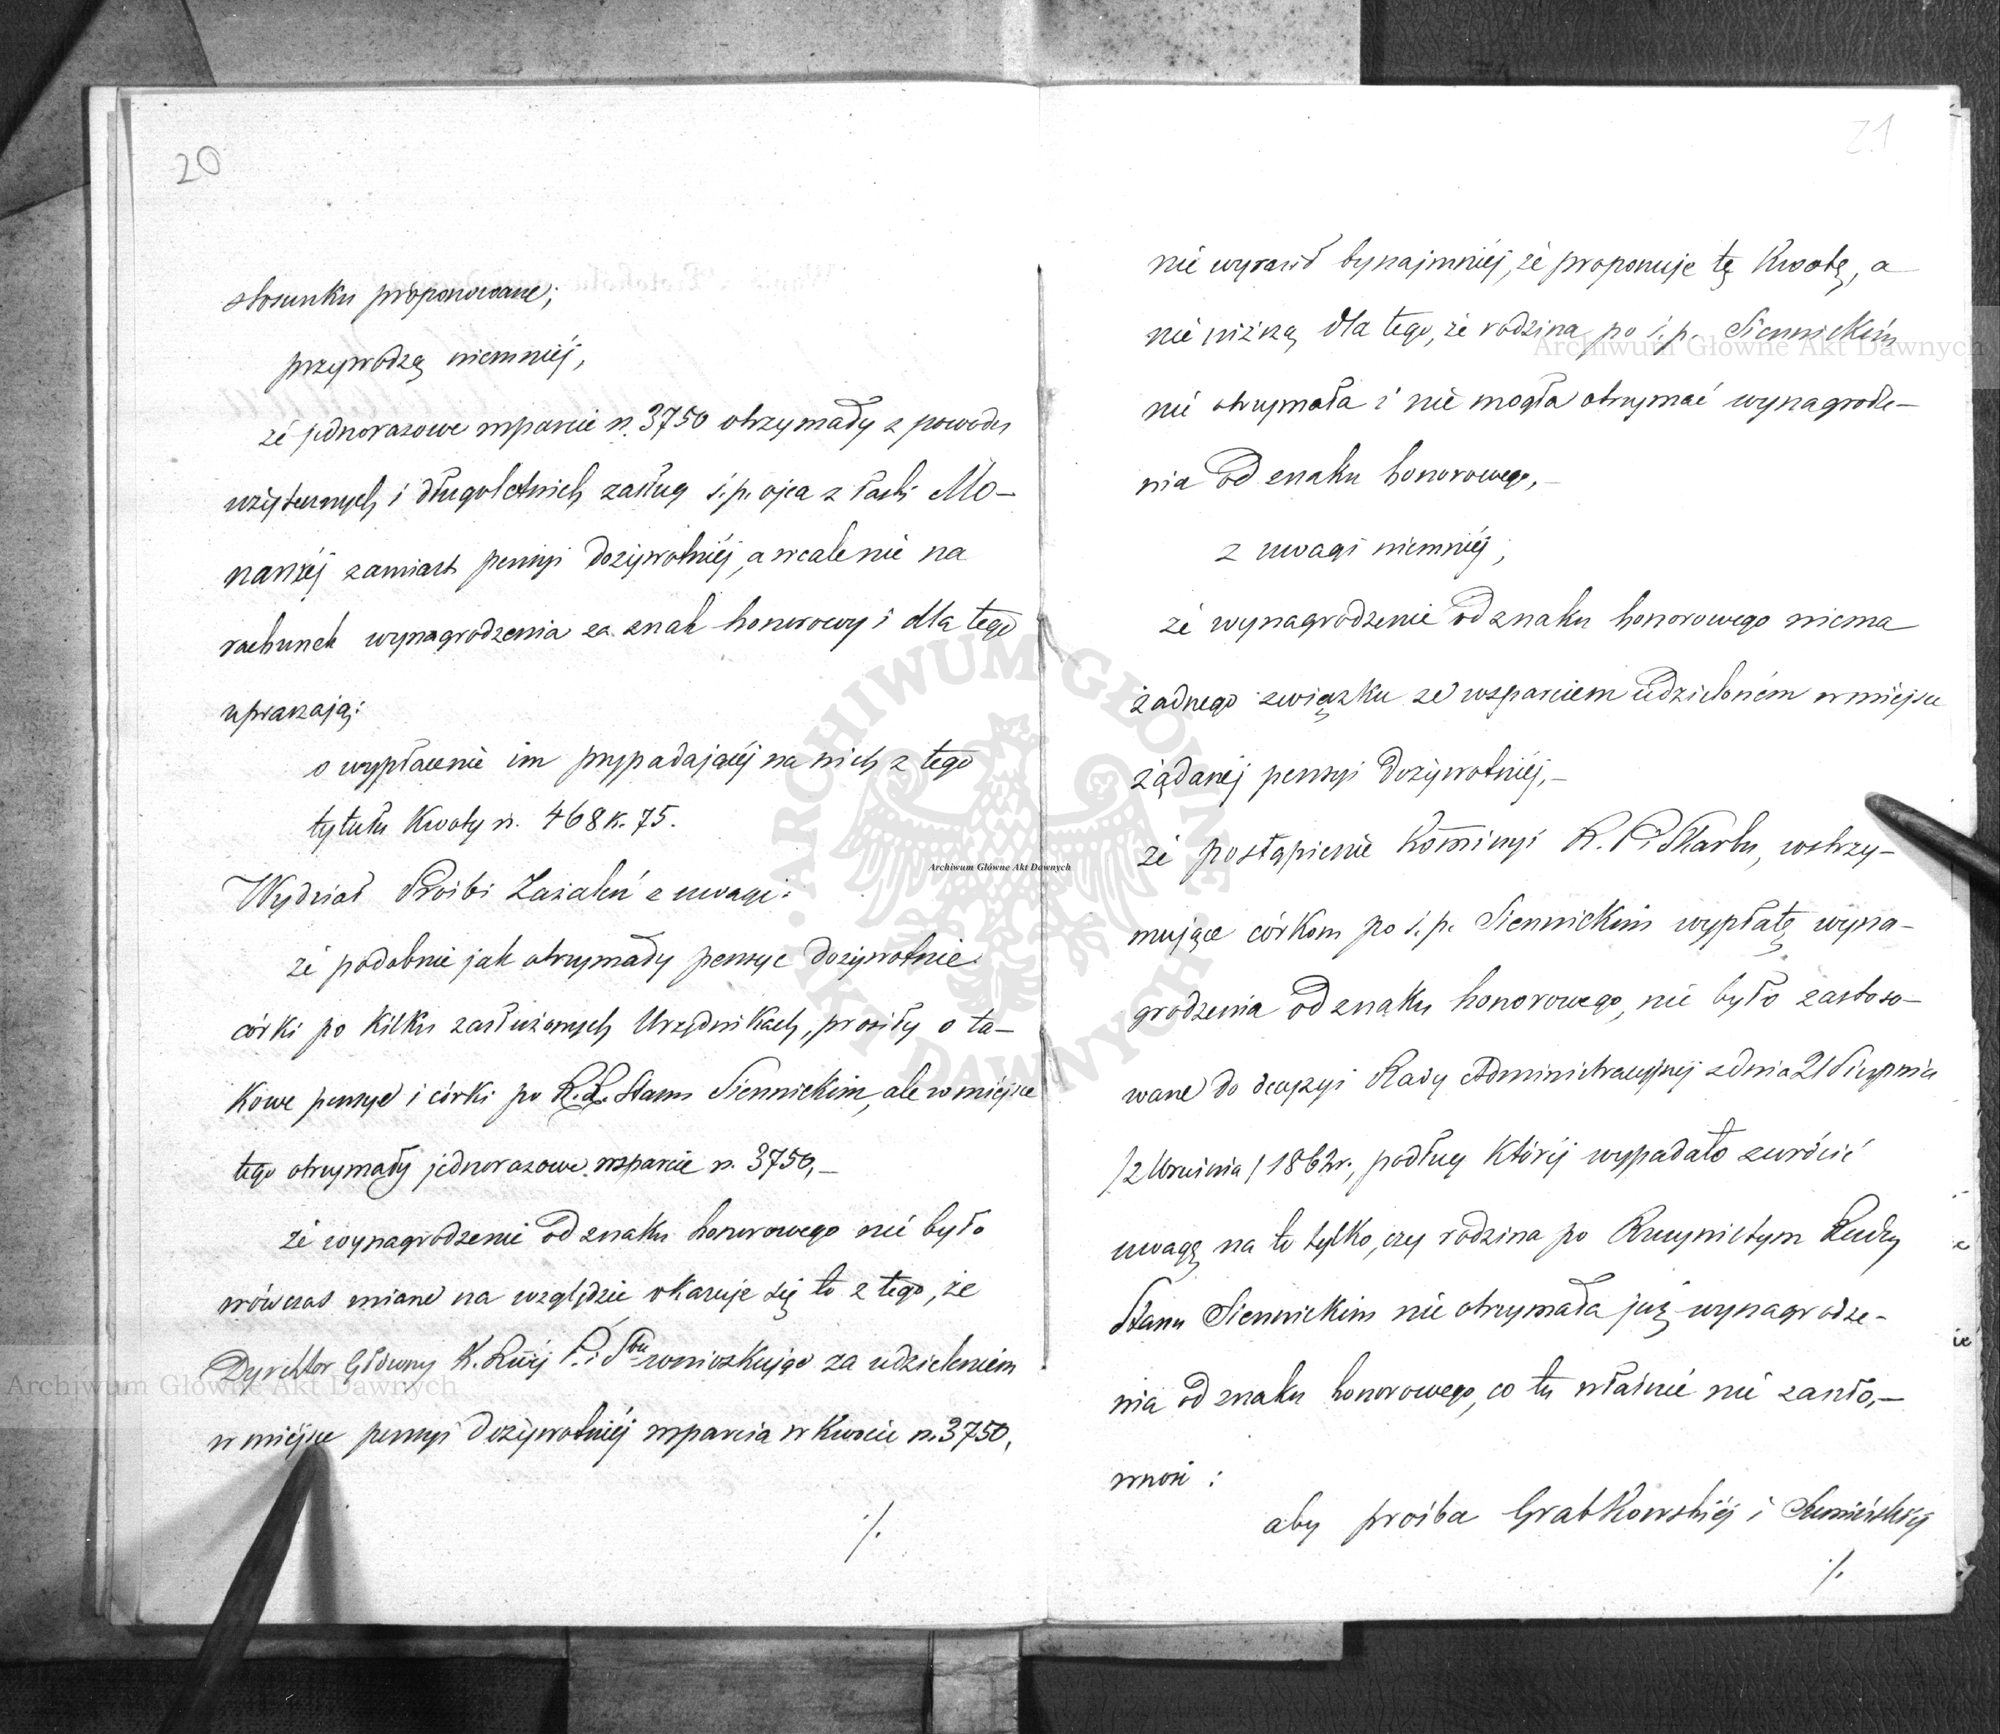 20
stosunku proponowane;
przywodzą niemniéj,
że jednorazowe wparcie rs. 3750 otrzymały z powodu
użytecznych i długoletnich zasług ś. p. ojca z łaski Mo-
narszéj zamiast pensyi dożywotniéj, a wcale nie na
rachunek wynagrodzenia za znak honorowy i dla tego
upraszają:
o wypłacenie im przypadającéj na nich z tego
tytułu Kwoty rs. 468 k. 75.
Wydział Próśb i Zażaleń z uwagi:
że podobnie jak otrzymały pensye dożywotnie
córki po kilku zasłużonych Urzędnikach, prosiły o ta-
kowe pensye i córki po R. R. Stanu Siennickim, ale w miejsce
tego otrzymały jednorazowe wsparcie rs. 3750,—
że wynagrodzenie od znaku honorowego nie było
wówczas miane na względzie okazuje się to z tego, że
Dyrektor Główny K. Rząj P. i Sbu wnioskując za udzieleniem
w miejsce pensyi dożywotniéj wsparcia w Kwocie rs. 3750,
./.
21
nie wyraził bynajmniéj, że proponuje tę Kwotę, a
nie niższą dla tego, że rodzina po ś. p. Siennickim
nie otrzymała i nie mogła otrzymać wynagrodze-
nia od znaku honorowego,—
z uwagi niemniéj;
że wynagrodzenie od znaku honorowego niema
żadnego związku ze wsparciem udzieloném w miejsce
żądanéj pensyi dożywotniéj,—
że postąpienie Kommisyi R. P. i Skarbu, wstrzy-
mujące córkom po ś. p. Siennickim wypłatę wyna-
grodzenia od znaku honorowego, nie było zastoso-
wane do decyzyi Rady Administracyjnej z dnia 21 Sierpnia
/2 Września/ 1862 r., podług któréj wypadało zwrócić
uwagę na to tylko, czy rodzina po Rzeczywistym Radzcy
Stanu Siennickim nie otrzymała już wynagrodze-
nia od znaku honorowego, co tu właśnie nie zaszło,—
wnosi:
aby prośba Grabkowskiéj i Sumińskiéj
./.
Archiwum Główne Akt Dawnych
Archiwum Główne Akt Dawnych
Archiwum Główne Akt Dawnych
ARCHIWUM GŁÓWNE AKT DAWNYCH